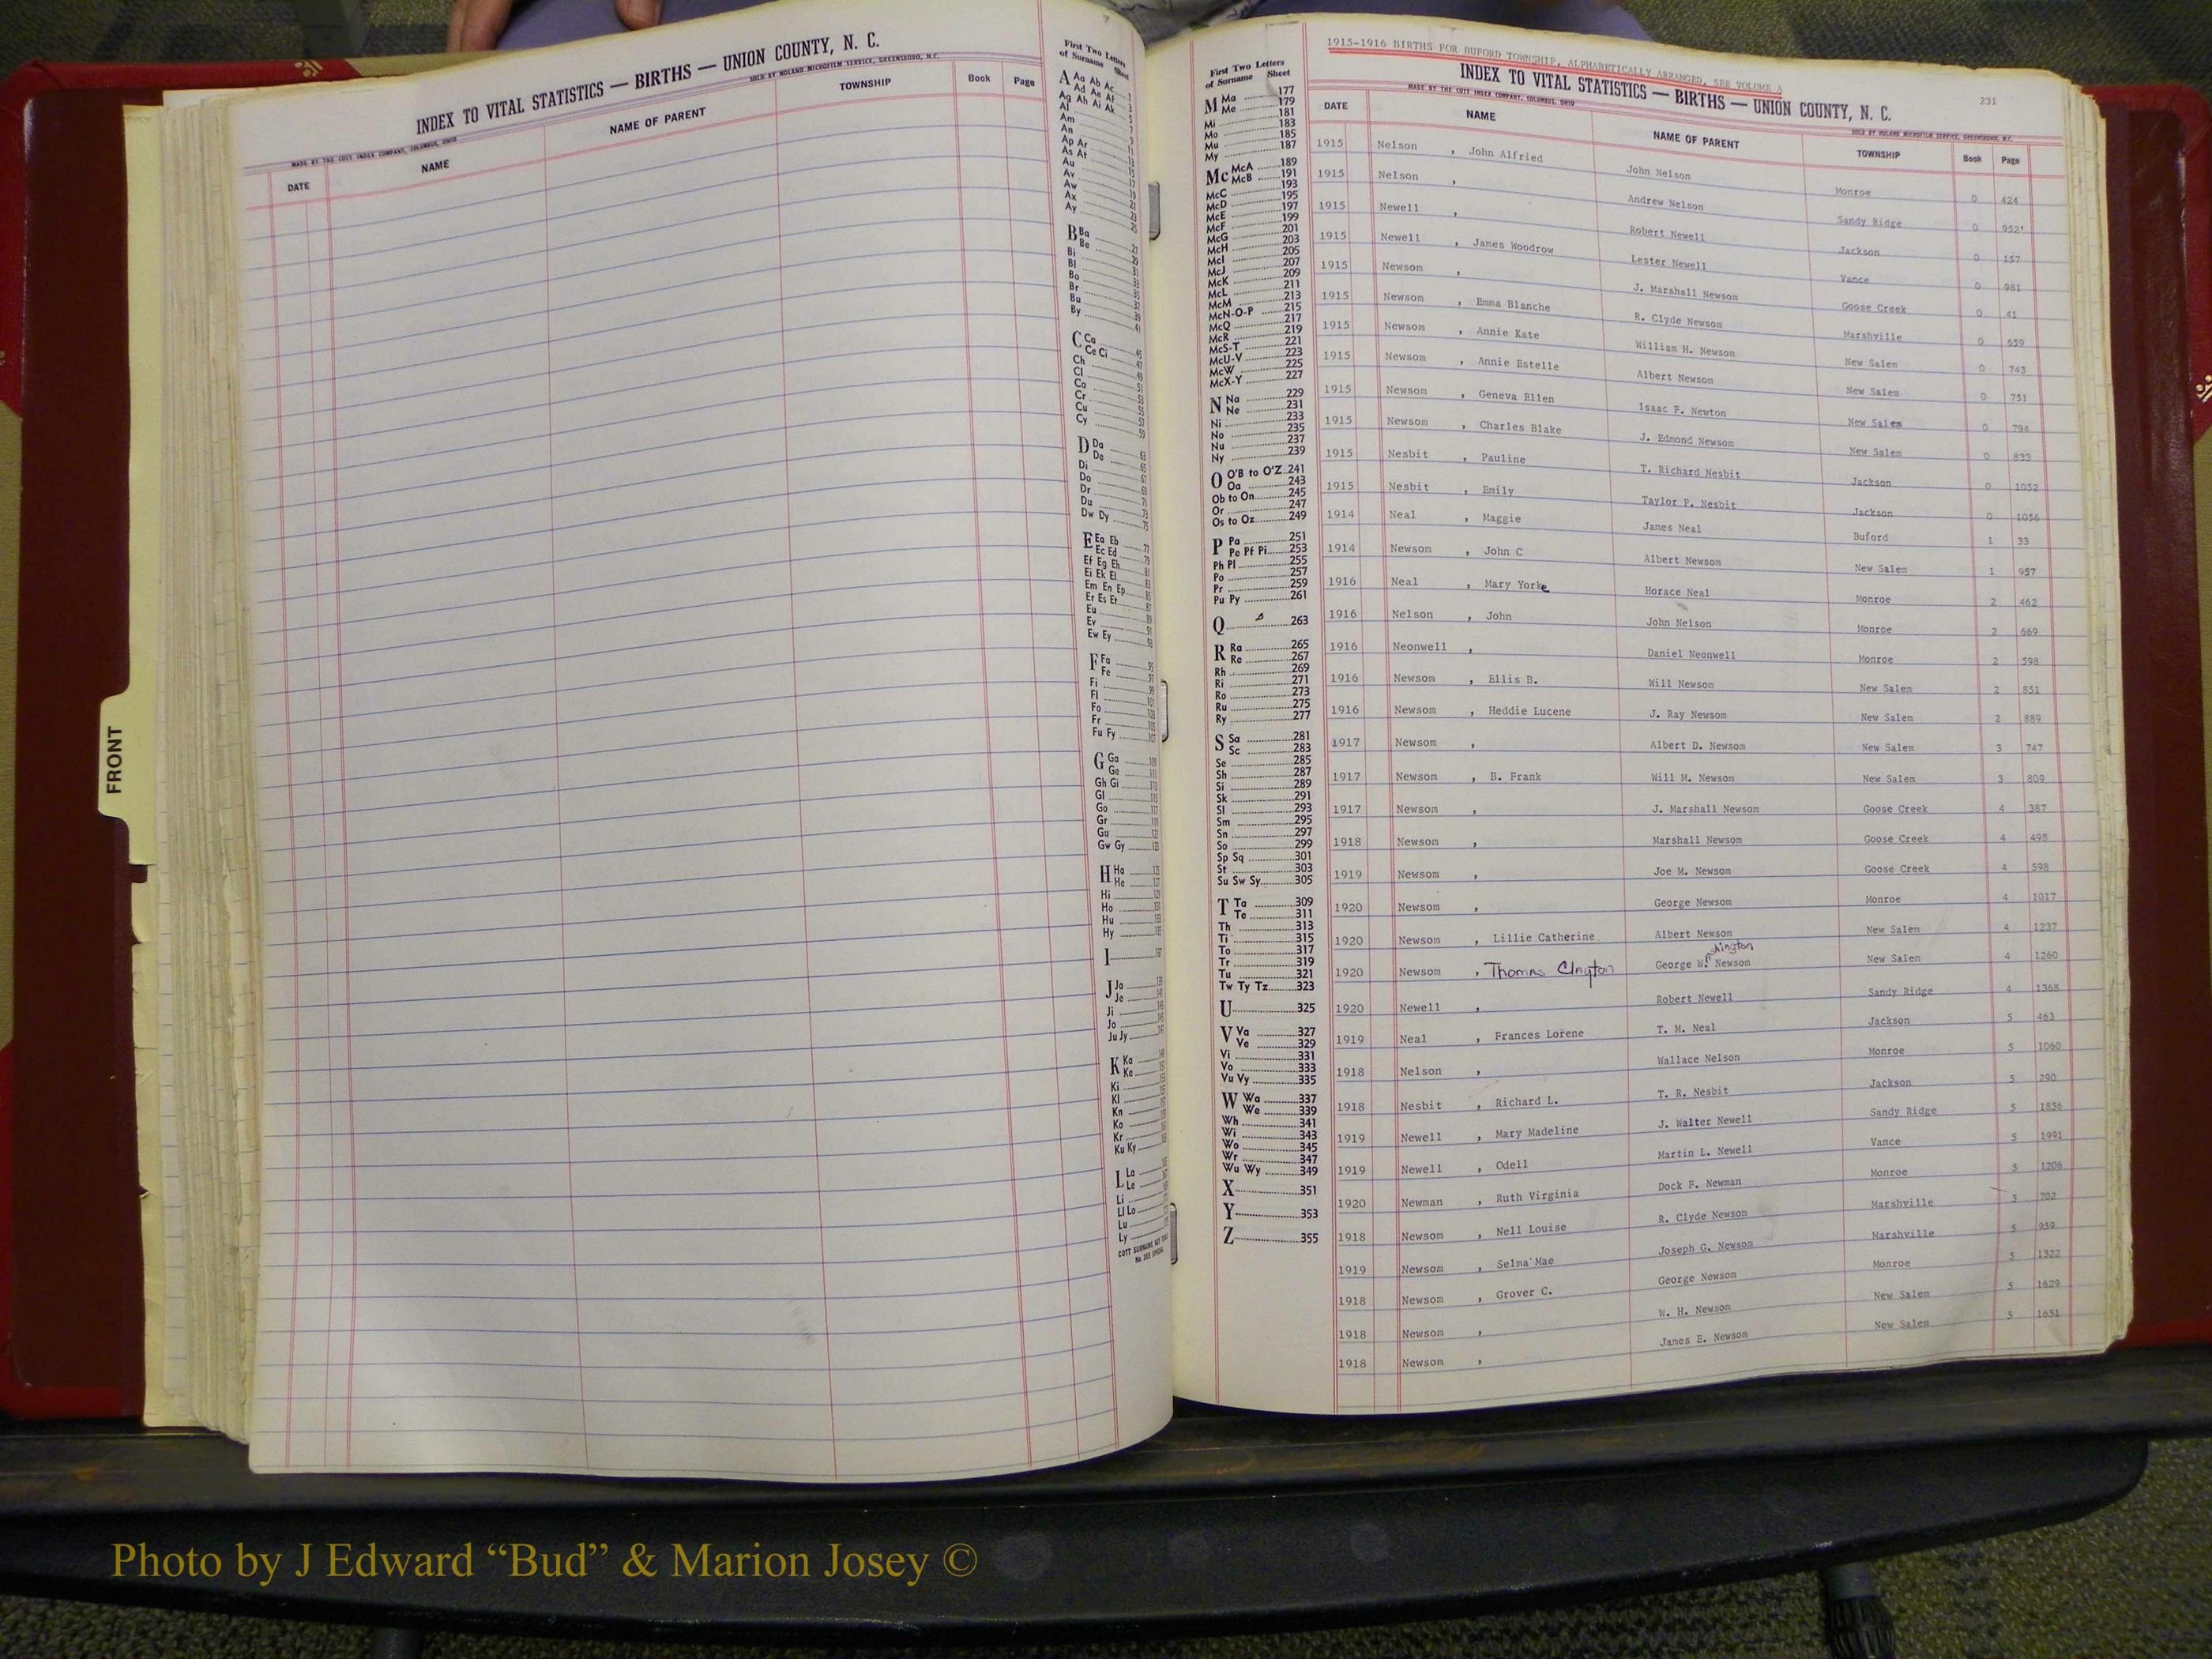 INDEX TO VITAL STATISTICS — BIRTHS — UNION COUNTY, N. C.
MADE BY THE COTT INDEX COMPANY, COLUMBUS, OHIO
SOLD BY NOLAND MICROFILM SERVICE, GREENSBORO, N.C.
DATE NAME NAME OF PARENT TOWNSHIP Book Page
FRONT
First Two Letters
of Surname Sheet
A Aa Ab Ac
Ad Ae Af
Ag Ah Ai Ak
Al
Am
An
Ap Ar
As At
Au
Av
Aw
Ax
Ay
B Ba
Be
Bi
Bl
Bo
Br
Bu
By
C Ca
Ce Ci
Ch
Cl
Co
Cr
Cu
Cy
D Da
De
Di
Do
Dr
Du
Dw Dy
E Ea Eb
Ec Ed
Ef Eg Eh
Ei Ek El
Em En Ep
Er Es Et
Eu
Ev
Ew Ey
F Fa
Fe
Fi
Fl
Fo
Fr
Fu Fy
G Ga
Ge
Gh Gi
Gl
Go
Gr
Gu
Gw Gy
H Ha
He
Hi
Ho
Hu
Hy
I
J Ja
Je
Ji
Jo
Ju Jy
K Ka
Ke
Ki
Kl
Kn
Ko
Kr
Ku Ky
L La
Le
Li
Ll Lo
Lu
Ly
First Two Letters
of Surname Sheet
M Ma 177
Me 179
Mi 181
Mo 183
Mu 185
My 187
Mc McA 189
McB 191
McC 193
McD 195
McE 197
McF 199
McG 201
McH 203
McI 205
McJ 207
McK 209
McL 211
McM 213
McN-O-P 215
McQ 217
McR 219
McS-T 221
McU-V 223
McW 225
McX-Y 227
N Na 229
Ne 231
Ni 233
No 235
Nu 237
Ny 239
O O'B to O'Z 241
Oa 243
Ob to On 245
Or 247
Os to Oz 249
P Pa 251
Pe Pf Pi 253
Ph Pl 255
Po 257
Pr 259
Pu Py 261
Q 263
R Ra 265
Re 267
Rh 269
Ri 271
Ro 273
Ru 275
Ry 277
S Sa 281
Sc 283
Se 285
Sh 287
Si 289
Sk 291
Sl 293
Sm 295
Sn 297
So 299
Sp Sq 301
St 303
Su Sw Sy 305
T Ta 309
Te 311
Th 313
Ti 315
To 317
Tr 319
Tu 321
Tw Ty Tz 323
U 325
V Va 327
Ve 329
Vi 331
Vo 333
Vu Vy 335
W Wa 337
We 339
Wh 341
Wi 343
Wo 345
Wr 347
Wu Wy 349
X 351
Y 353
Z 355
1915-1916 BIRTHS FOR BUFORD TOWNSHIP, ALPHABETICALLY ARRANGED, SEE VOLUME
INDEX TO VITAL STATISTICS — BIRTHS — UNION COUNTY, N. C.
231
MADE BY THE COTT INDEX COMPANY, COLUMBUS, OHIO
SOLD BY NOLAND MICROFILM SERVICE, GREENSBORO, N.C.
DATE NAME NAME OF PARENT TOWNSHIP Book Page
1915 Nelson , John Alfried John Nelson Monroe 0 424
1915 Nelson , Andrew Nelson Sandy Ridge 0 952
1915 Newell , Robert Newell Jackson 0 157
1915 Newell , James Woodrow Lester Newell Vance 0 981
1915 Newsom , J. Marshall Newsom Goose Creek 0 41
1915 Newsom , Emma Blanche R. Clyde Newsom Marshville 0 659
1915 Newsom , Annie Kate William H. Newsom New Salem 0 743
1915 Newsom , Annie Estelle Albert Newsom New Salem 0 751
1915 Newsom , Geneva Ellen Isaac F. Newton New Salem 0 794
1915 Newsom , Charles Blake J. Edmond Newsom New Salem 0 833
1915 Nesbit , Pauline T. Richard Nesbit Jackson 0 1052
1915 Nesbit , Emily Taylor P. Nesbit Jackson 0 1056
1914 Neal , Maggie James Neal Buford 1 33
1914 Newsom , John C Albert Newsom New Salem 1 957
1916 Neal , Mary Yorke Horace Neal Monroe 2 462
1916 Nelson , John John Nelson Monroe 2 669
1916 Neonwell , Daniel Neonwell Monroe 2 598
1916 Newsom , Ellis B. Will Newsom New Salem 2 851
1916 Newsom , Heddie Lucene J. Ray Newsom New Salem 2 889
1917 Newsom , Albert D. Newsom New Salem 3 747
1917 Newsom , B. Frank Will M. Newsom New Salem 3 809
1917 Newsom , J. Marshall Newsom Goose Creek 4 387
1918 Newsom , Marshall Newsom Goose Creek 4 498
1919 Newsom , Joe M. Newsom Goose Creek 4 598
1920 Newsom , George Newsom Monroe 4 1017
1920 Newsom , Lillie Catherine Albert Newsom New Salem 4 1237
1920 Newsom , Thomas Clayton George W. Newsom New Salem 4 1260
1920 Newell , Robert Newell Sandy Ridge 4 1368
1919 Neal , Frances Lorene T. M. Neal Jackson 5 463
1918 Nelson , Wallace Nelson Monroe 5 1060
1918 Nesbit , Richard L. T. R. Nesbit Jackson 5 290
1919 Newell , Mary Madeline J. Walter Newell Sandy Ridge 5 1856
1919 Newell , Odell Martin L. Newell Vance 5 1991
1920 Newman , Ruth Virginia Dock F. Newman Monroe 5 1206
1918 Newsom , Nell Louise R. Clyde Newsom Marshville 5 702
1919 Newsom , Selma Mae Joseph G. Newsom Marshville 5 959
1918 Newsom , Grover C. George Newsom Monroe 5 1322
1918 Newsom , W. H. Newsom New Salem 5 1629
1918 Newsom , James E. Newsom New Salem 5 1651
Photo by J Edward “Bud” & Marion Josey ©